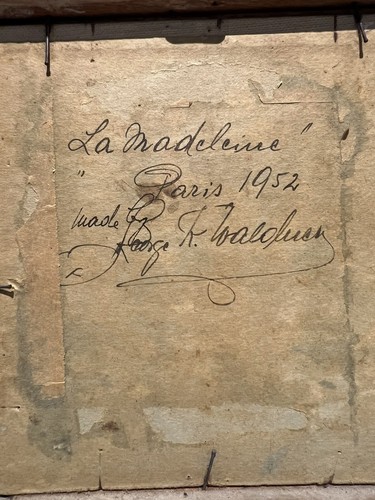 La Madeleine"
" Paris 1952
made by
George K.